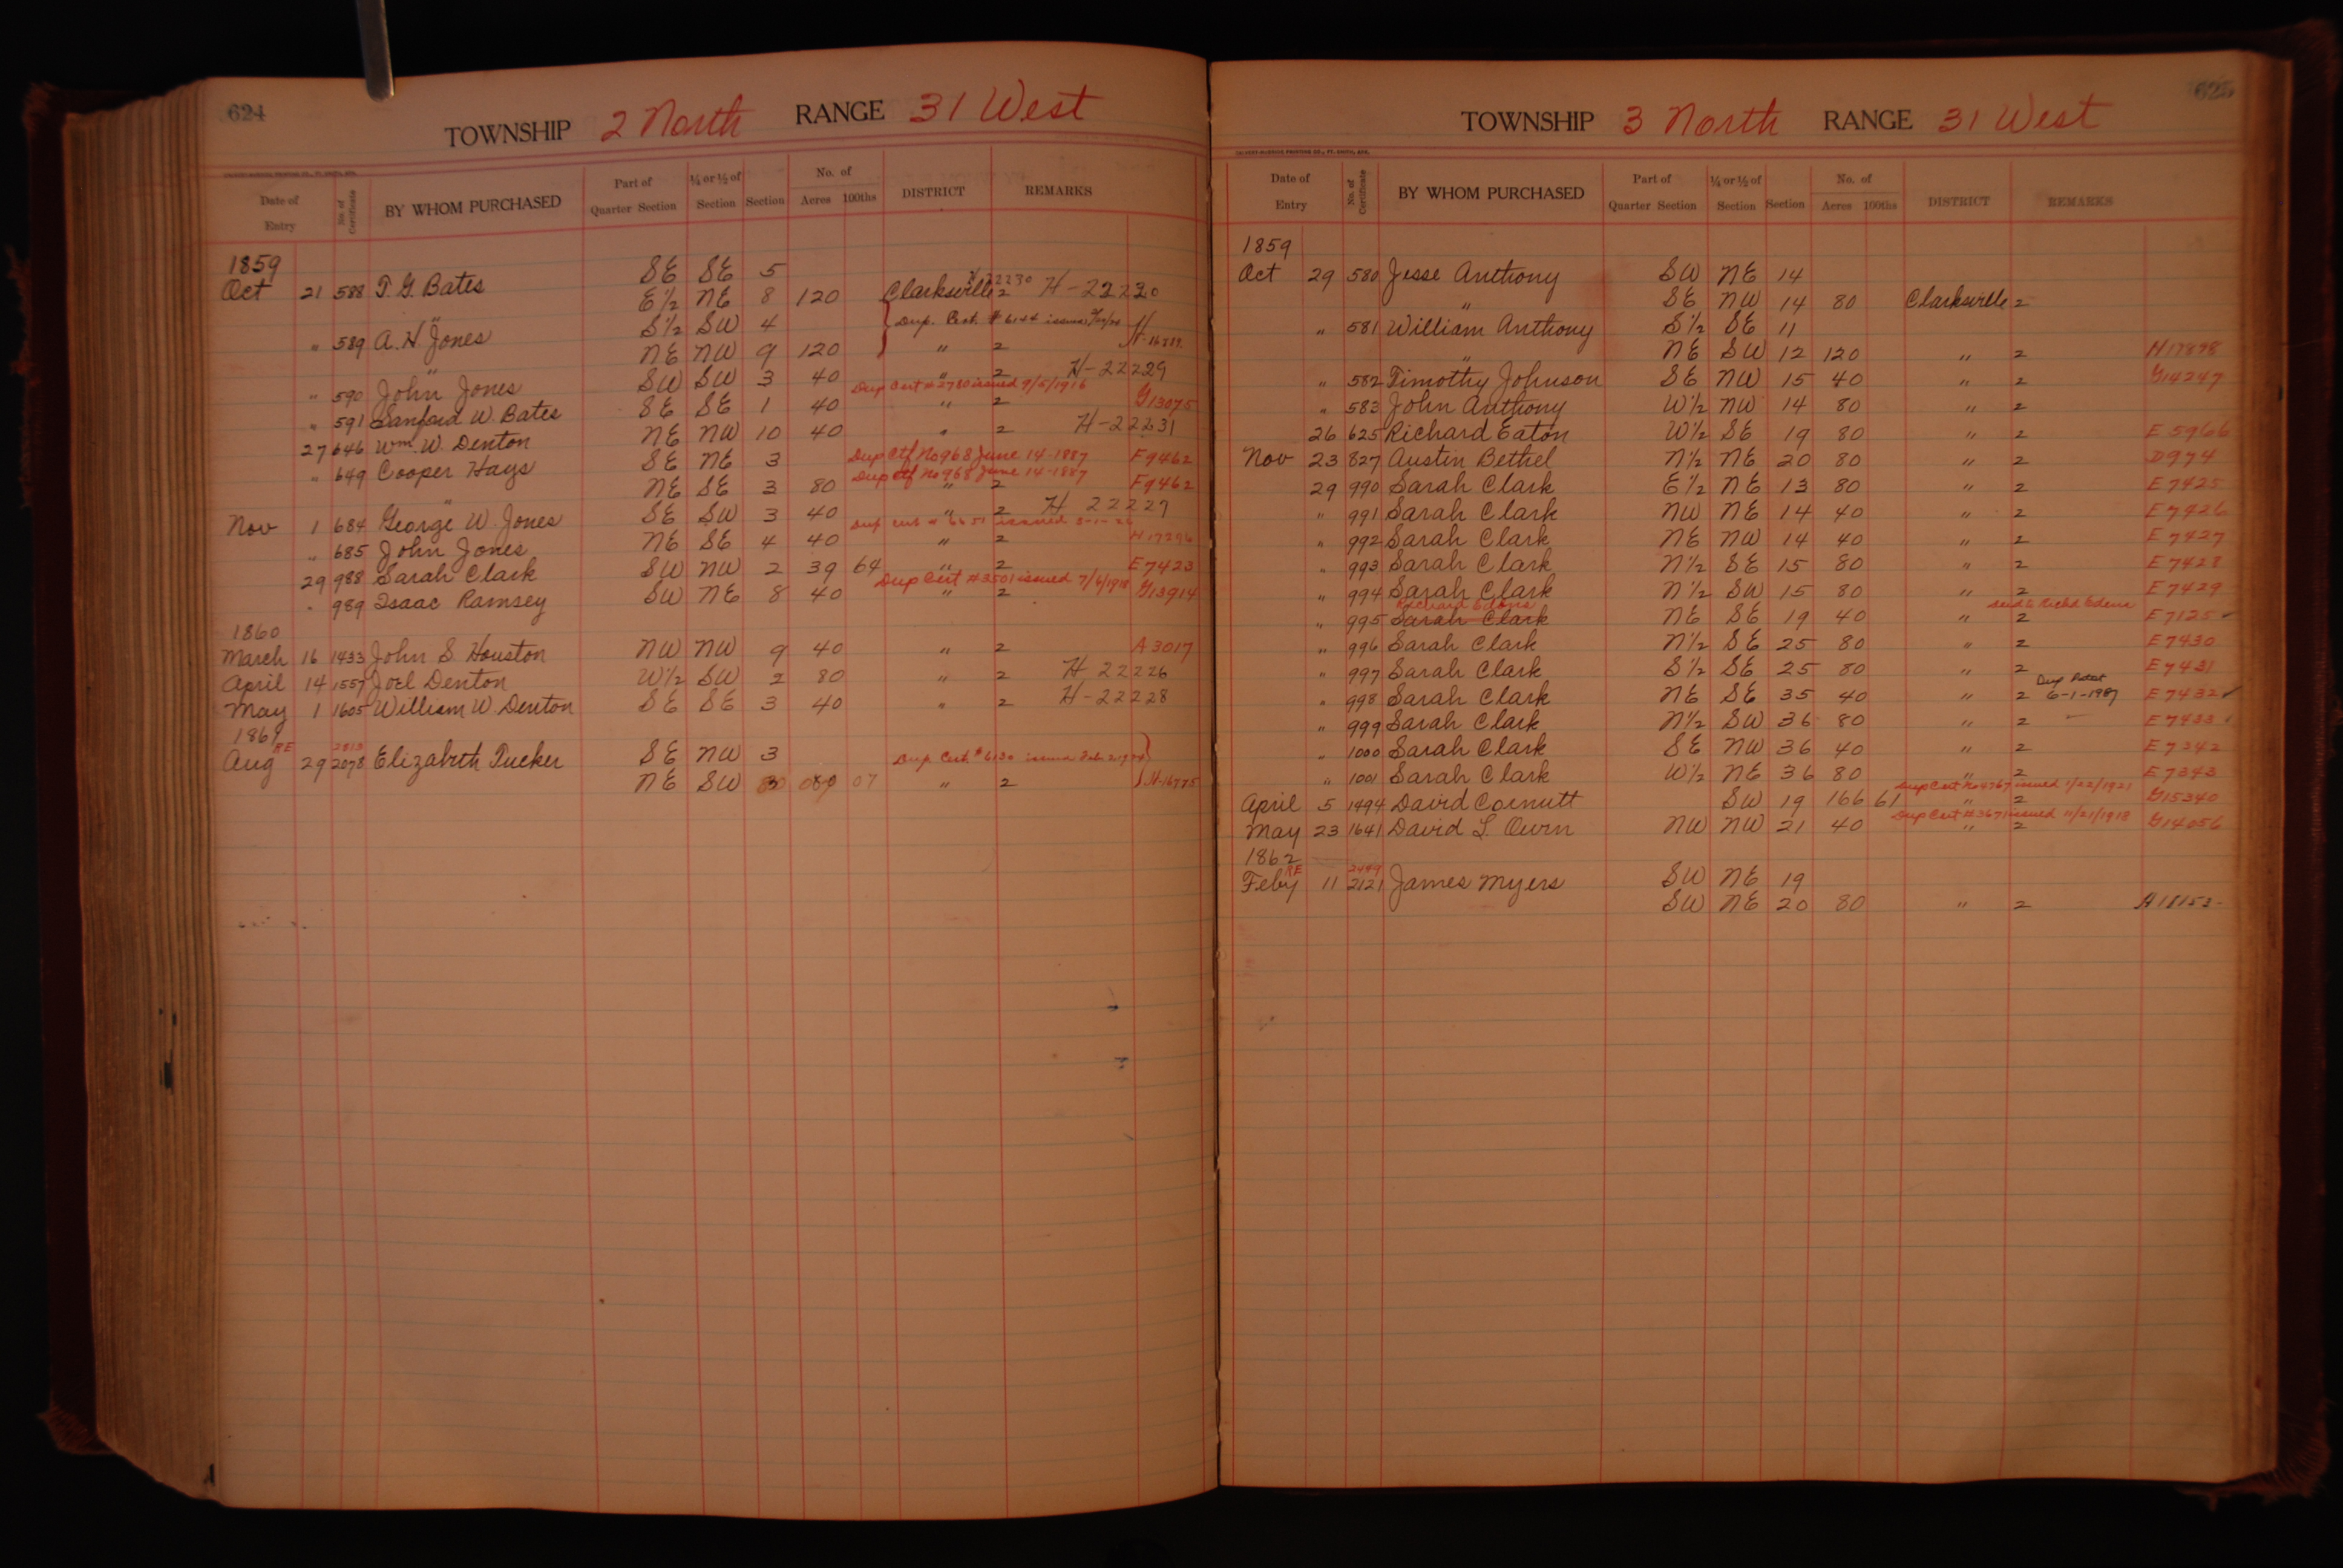 624
TOWNSHIP 2 North RANGE 31 West
Date of Entry No. of Certificate BY WHOM PURCHASED Part of Quarter Section ¼ or ½ of Section Section No. of Acres 100ths DISTRICT REMARKS
1859 SE SE 5
Oct 21 588 T. G. Bates E½ NE 8 120 Clarksville 2 H-22230
" S½ SW 4 Dup. Cert. # 6144 issued
" 589 A. H. Jones NE NW 9 120 " 2
" SW SW 3 40 " 2 H-22229
" 590 John Jones SE SE 1 40 Dup Cert # 2780 issued 9/5/1916 " 2 G13075
" 591 Sanford W. Bates NE NW 10 40 " 2 H-22231
27 646 Wm. W. Denton SE NE 3 Dup Ctf No 968 June 14-1887 F9462
" 649 Cooper Hays NE SE 3 80 Dup Ctf No 968 June 14-1887 " 2 F9462
" SE SW 3 40 " 2 H 22227
Nov 1 684 George W. Jones NE SE 4 40 " 2
" 685 John Jones SW NW 2 39 64 " 2 E7423
29 988 Sarah Clark SW NE 8 40 Dup Cert #3501 issued 7/6/1918 " 2 G13914
" 989 Isaac Ramsey
1860
March 16 1433 John S. Houston NW NW 9 40 " 2 A3017
April 14 1557 Joel Denton W½ SW 2 80 " 2 H 22226
May 1 1605 William W. Denton SE SE 3 40 " 2 H-22228
1861
Aug RE 29 2813 2078 Elizabeth Tucker SE NW 3 Dup Cert # 6130 issued
NE SW 3 80 07 " 2 H-16775
625
TOWNSHIP 3 North RANGE 31 West
CALVERT-McBRIDE PRINTING CO., FT. SMITH, ARK.
Date of Entry No. of Certificate BY WHOM PURCHASED Part of Quarter Section ¼ or ½ of Section Section No. of Acres 100ths DISTRICT REMARKS
1859
Oct 29 580 Jesse Anthony SW NE 14
" SE NW 14 80 Clarksville 2
" 581 William Anthony S½ SE 11
" NE SW 12 120 " 2 H17898
" 582 Timothy Johnson SE NW 15 40 " 2 G14247
" 583 John Anthony W½ NW 14 80 " 2
26 625 Richard Eaton W½ SE 19 80 " 2 E5966
Nov 23 827 Austin Bethel N½ NE 20 80 " 2 D974
29 990 Sarah Clark E½ NE 13 80 " 2 E7425
" 991 Sarah Clark NW NE 14 40 " 2 E7426
" 992 Sarah Clark NE NW 14 40 " 2 E7427
" 993 Sarah Clark N½ SE 15 80 " 2 E7428
" 994 Sarah Clark N½ SW 15 80 " 2 E7429
Richard Edens
" 995 Sarah Clark NE SE 19 40 " 2 E7125
" 996 Sarah Clark N½ SE 25 80 " 2 E7430
" 997 Sarah Clark S½ SE 25 80 " 2 E7431
" 998 Sarah Clark NE SE 35 40 " 2 Dup Patent 6-1-1987 E7432
" 999 Sarah Clark N½ SW 36 80 " 2 E7433
" 1000 Sarah Clark SE NW 36 40 " 2 E7342
" 1001 Sarah Clark W½ NE 36 80 " 2 E7343
April 5 1494 David Cornutt SW 19 166 61 Dup Cert No 4767 issued 1/22/1921 " 2 G15340
May 23 1641 David L. Owen NW NW 21 40 Dup Cert #3671 issued 11/21/1918 " 2 G14056
1862
Feby RE 11 2499 2121 James Myers SW NE 19
SW NE 20 80 " 2 H18153